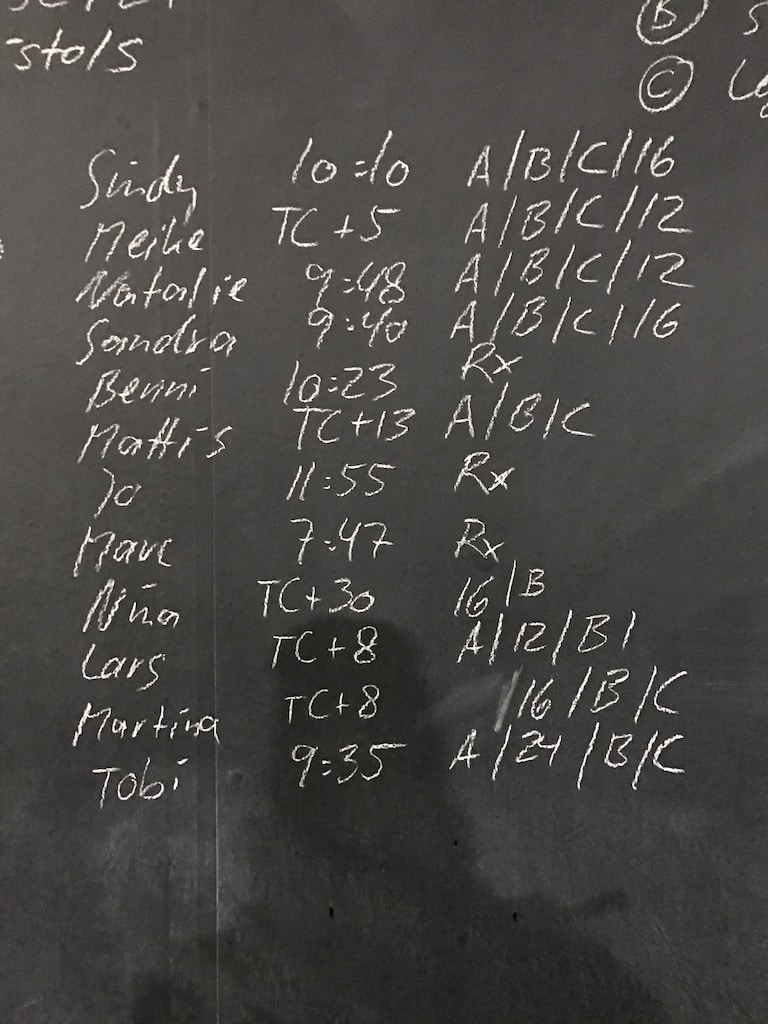 -stols
B S
C
Sindy 10:10 A/B/C/16
Meike TC+5 A/B/C/12
Natalie 9:48 A/B/C/12
Sandra 9:40 A/B/C/16
Benni 10:23 Rx
Mattis TC+13 A/B/C
Jo 11:55 Rx
Marc 7:47 Rx
Nina TC+30 16/B
Lars TC+8 A/12/B/
Martina TC+8 /16/B/C
Tobi 9:35 A/24/B/C